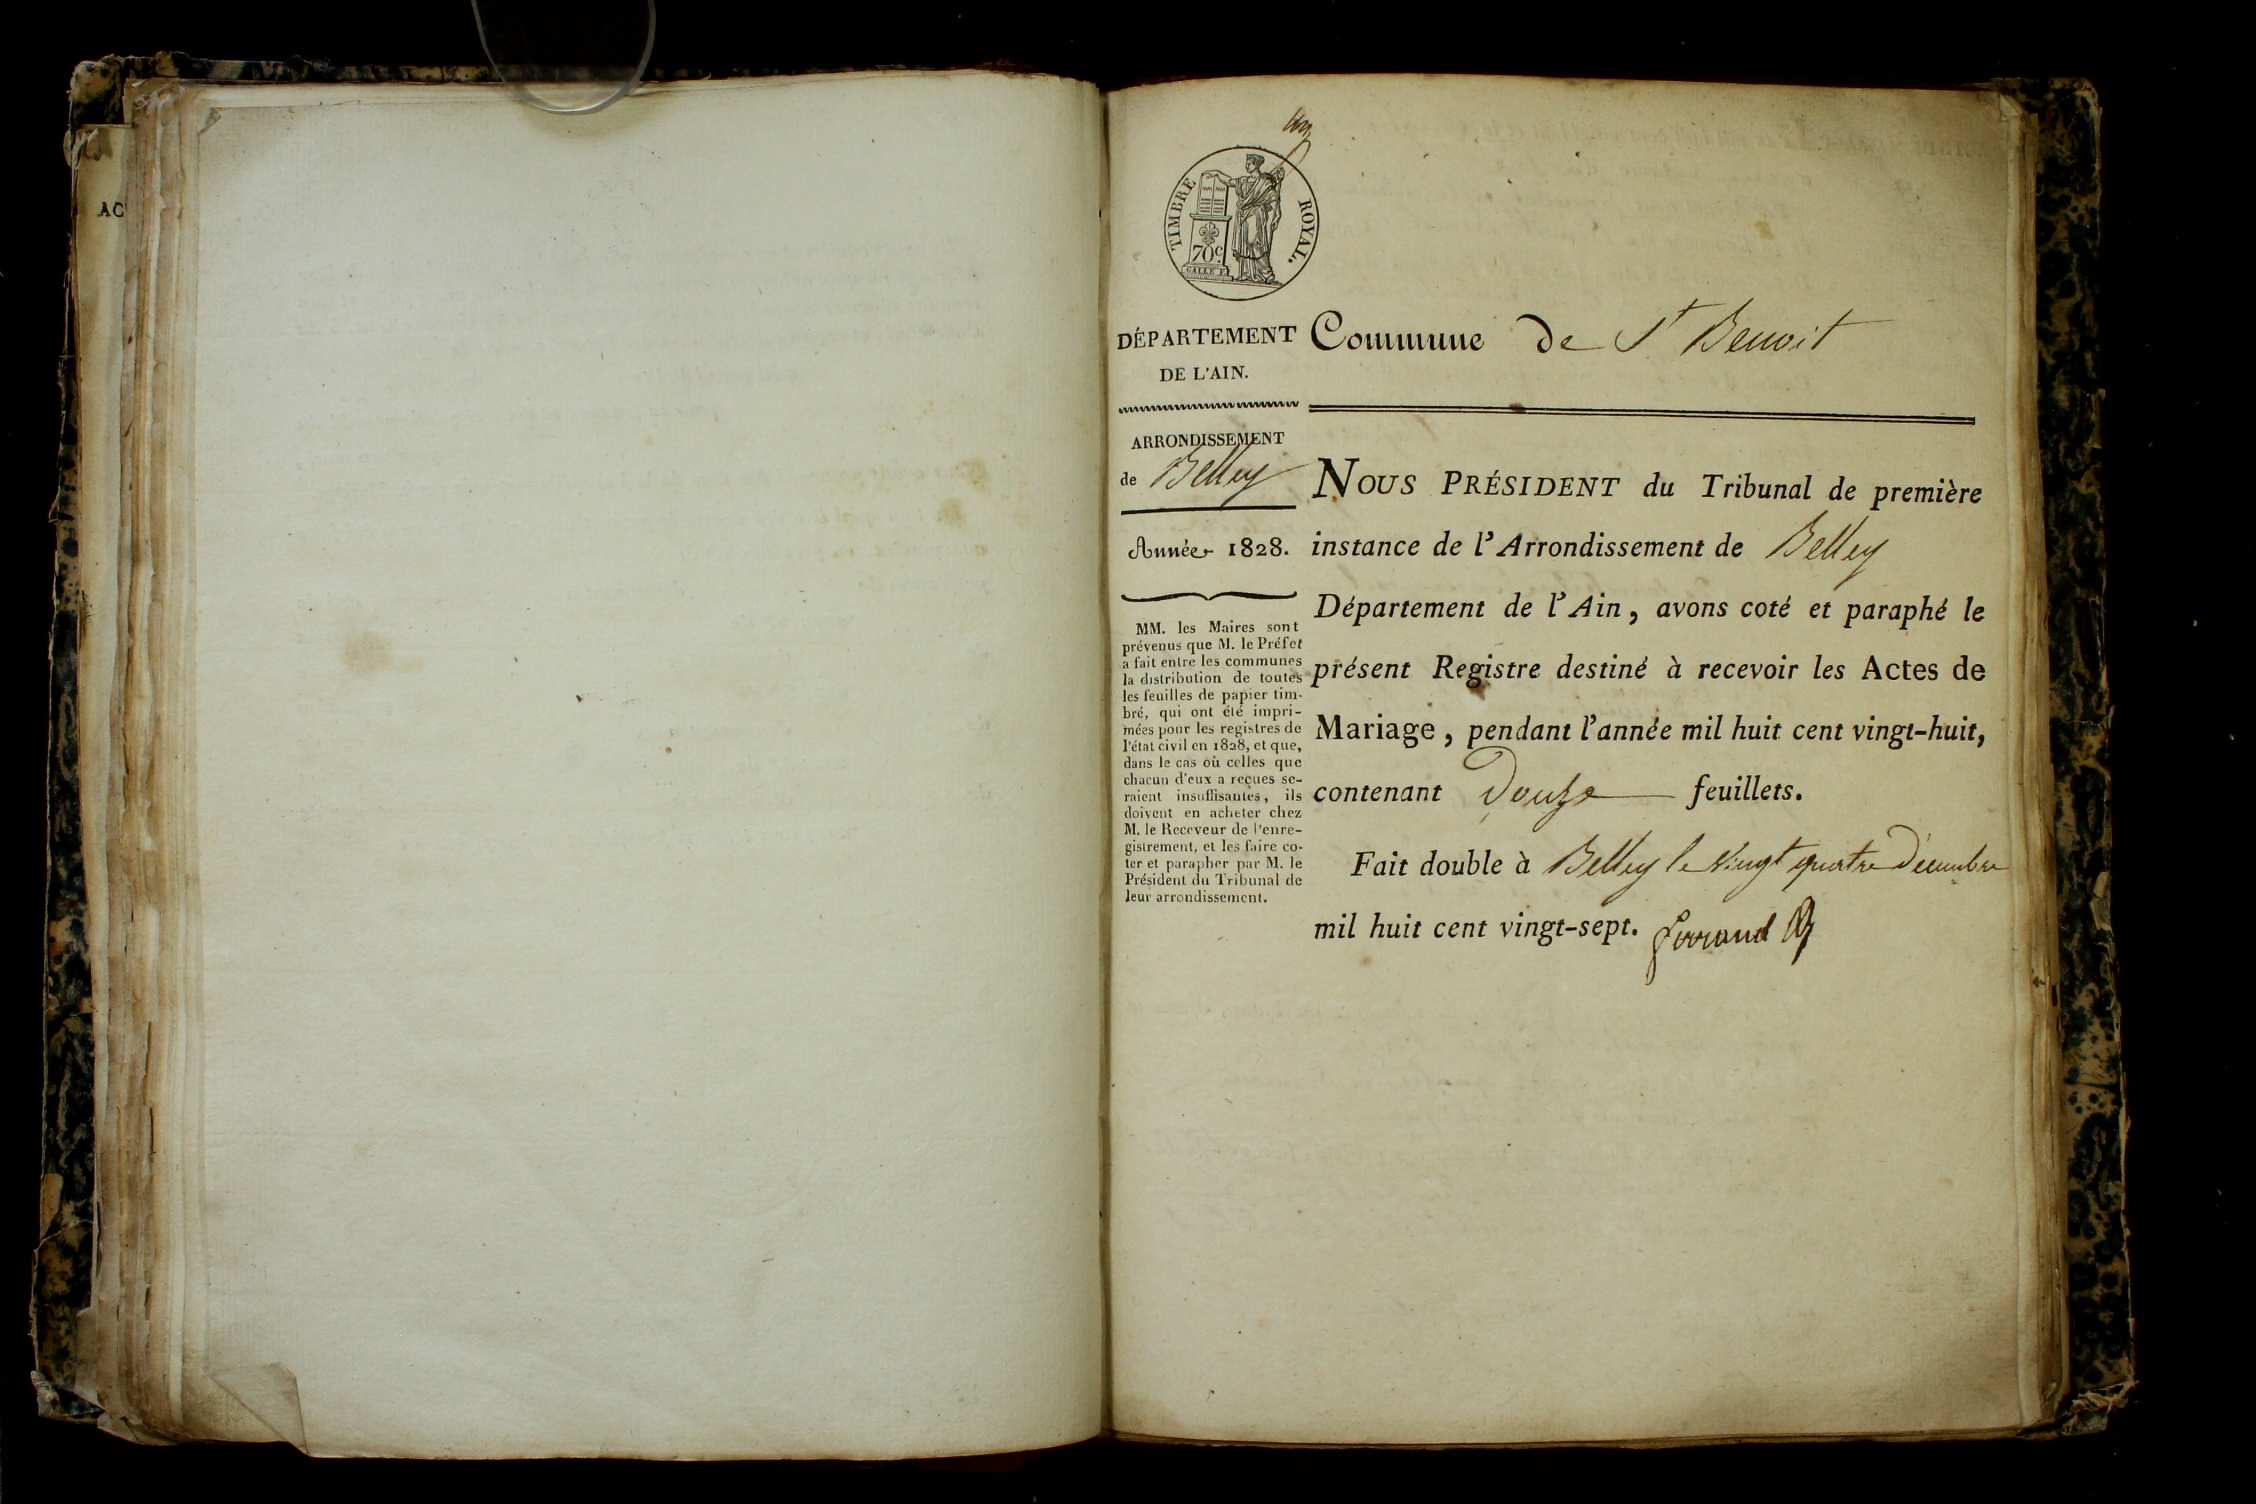 AC
TIMBRE ROYAL.
70c.
DÉPARTEMENT
DE L'AIN.
ARRONDISSEMENT
de Belley
Année 1828.
MM. les Maires sont
prévenus que M. le Préfet
a fait entre les communes
la distribution de toutes
les feuilles de papier tim-
bré, qui ont été impri-
mées pour les registres de
l'état civil en 1828, et que,
dans le cas où celles que
chacun d'eux a reçues se-
raient insuffisantes, ils
doivent en acheter chez
M. le Receveur de l'enre-
gistrement, et les faire co-
ter et parapher par M. le
Président du Tribunal de
leur arrondissement.
Commune de St Benoit
NOUS PRÉSIDENT du Tribunal de première
instance de l'Arrondissement de Belley
Département de l'Ain, avons coté et paraphé le
présent Registre destiné à recevoir les Actes de
Mariage, pendant l'année mil huit cent vingt-huit,
contenant Douze feuillets.
Fait double à Belley le vingt quatre Décembre
mil huit cent vingt-sept.